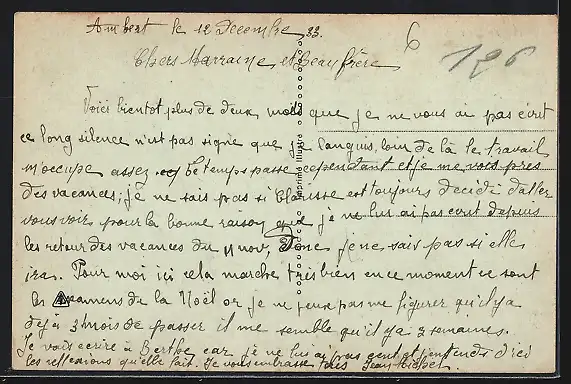 Ambert le 12 Decembre 33.
6
196
Chers Marraine et Beau frère
Voici bientot plus de deux mois que je ne vous ai pas écrit
ce long silence n'est pas signe que je languis, loin de là le travail
m'occupe assez et le temps passe cependant et je me vois près
des vacances; je ne sais pas si Clarisse est toujours décidé d'aller
vous voir pour la bonne raison que je ne lui ai pas écrit depuis
les retour des vacances du 11 nov, Donc je ne sais pas si elle
iras. Pour moi ici cela marche très bien en ce moment ce sont
les examens de la Noël or je ne peux pas me figurer qu'il y a
deja 3 mois de passer il me semble qu'il y a 3 semaines.
Je vais ecrire à Berthe car je ne lui ai pas ecrit et j'entends d'ici
les reflexions qu'elle fait. Je vous embrasse
Imprimé Illustré